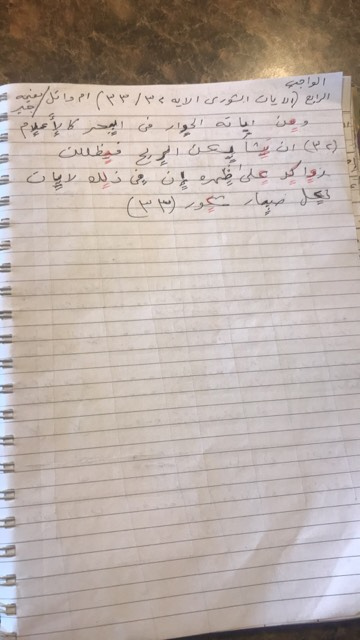 الواجب
الرابع (الايات الشورى الايه ٣٢ / ٣٣) ام وائل /
ومن اياته الجوار فى البحر كالأعلام
(٣٢) ان يشأ يسكن الريح فيظللن
رواكد على ظهره إن فى ذلك لايات
لكل صبار شكور (٣٣)